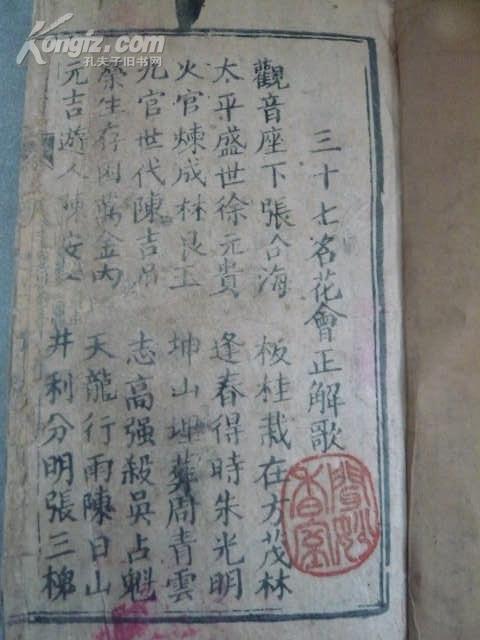 Kongfz.com
孔夫子旧书网
三十七名花會正解歌
觀音座下張合海 板桂栽在方茂林
太平盛世徐元貴 逢春得時朱光明
火官煉成林艮玉 坤山埋葬周青雲
九官世代陳吉品 志高强殺吳占魁
榮生存因萬金 天龍行雨陳日山
元吉遊人陳安 井利分明張三
聞妙香室